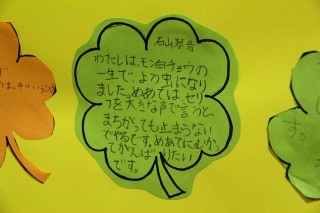 石山琴音
わたしは、モンシロチョウの
一生で、よう虫になり
ました。めあては、セリ
フを大きな声で言うと、
まちがっても止まらない
でやるです。めあてにむかっ
てがんばりたい
です。
す。